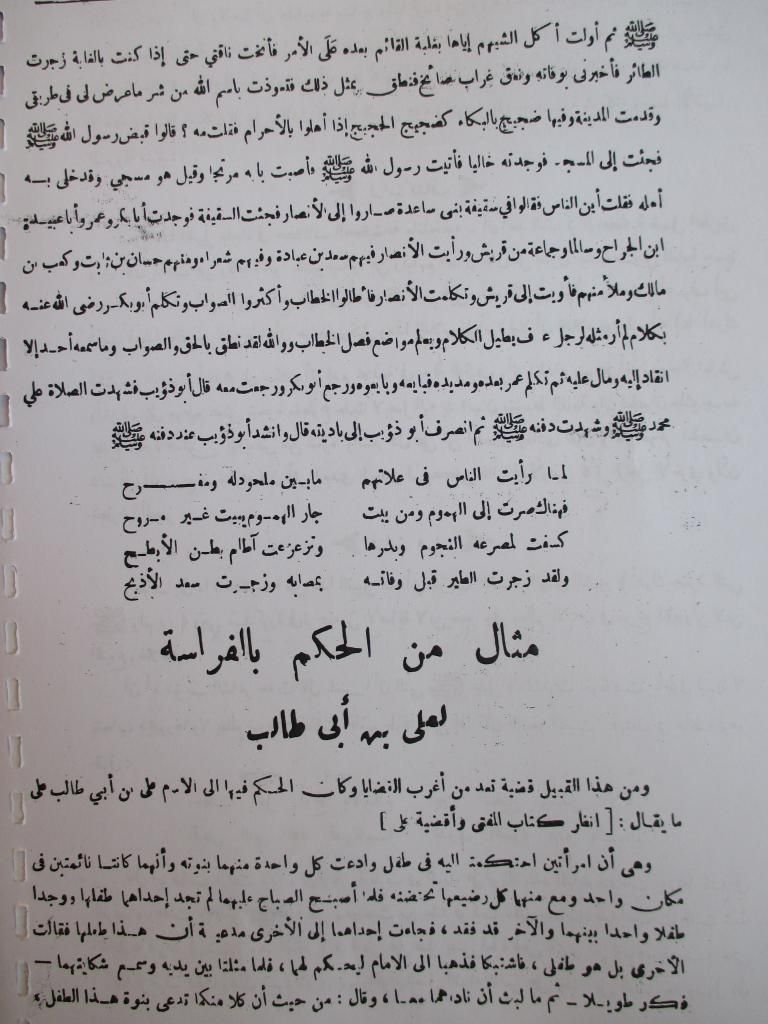 ﷺ ثم أولت أكل الشيهم إياها بغلبة القائم بعده على الأمر فأنخت ناقتي حتى إذا كنت بالغابة زجرت
الطائر فأخبرنى بوفاته ونعق غراب صائح فنطق بمثل ذلك فتعوذت باسم الله من شر ماعرض لى فى طريقى
وقدمت المدينة وفيها ضجيج بالبكاء كضجيج الحجيج إذا أهلوا بالأحرام فقلت مه ؟ قالوا قبض رسول الله ﷺ
فجئت إلى المسجد فوجدته خاليا فأتيت رسول الله ﷺ فأصبت بابه مرتجا وقيل هو مسجي وقدخلى به
أهله فقلت أين الناس فقالوا في سقيفة بنى ساعدة صاروا إلى الأنصار فجئت السقيفة فوجدت أبابكر وعمر وأباعبيدة
ابن الجراح وسالما وجماعة من قريش ورأيت الأنصار فيهم سعد بن عبادة وفيهم شعراء ومنهم حسان بن ثابت وكعب بن
مالك وملأ منهم فأويت إلى قريش وتكلمت الأنصار فأطالوا الخطاب وأكثروا الصواب وتكلم أبو بكر رضى الله عنه
بكلام لم أر مثله لرجل يطيل الكلام ويعلم مواضع فصل الخطاب ووالله لقد نطق بالحق والصواب وما سمعه أحد إلا
انقاد إليه ومال عليه ثم تكلم عمر بعده ومديده فبايعه وبايعوه ورجع أبو بكر ورجعت معه قال أبو ذؤيب فشهدت الصلاة علي
محمد ﷺ وشهدت دفنه ﷺ ثم انصرف أبو ذؤيب إلى باديته قال وانشد أبو ذؤيب عند دفنه ﷺ
لما رأيت الناس فى علاتهم مابين ملحود له ومفرح
فهناك صرت إلى الهموم ومن يبت جار الهموم يبيت غير مروح
كسفت لمصرعه النجوم وبدرها وتزعزعت آطام بطن الأبطح
ولقد زجرت الطير قبل وفاته بمصابه وزجرت سعد الأذبح
مثال من الحكم باالفراسة
لعلى بن أبى طالب
ومن هذا القبيل قضية تعد من أغرب القضايا وكان الحكم فيها الى الامام على بن أبي طالب على
ما يقال : [ انظر كتاب المفتى وأقضية على ]
وهى أن امرأتين احتكمتا اليه فى طفل وادعت كل واحدة منهما بنوته وأنهما كانتا نائمتين فى
مكان واحد ومع منهما كل رضيعها تحتضنه فلما أصبح الصباح عليهما لم تجد إحداهما طفلها ووجدا
طفلا واحدا بينهما والآخر قد فقد ، فجاءت إحداهما إلى الأخرى مدعية أن هذا طفلها فقالت
الأخرى بل هو طفلى ، فاشتبكا فذهبا الى الامام ليحكم لهما ، فلما مثلتا بين يديه وسمع شكايتهما —
فكر طويلا — ثم ما لبث أن ناداهما معا ، وقال : من حيث أن كلا منكما تدعى بنوة هذا الطفل ،